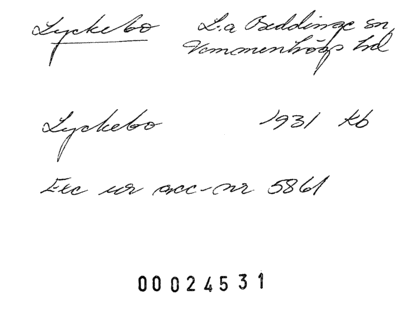 Lyckebo L:a Beddinge sn,
Vemmenhögs hd
Lyckebo 1931 Kb
Exc ur acc-nr 5861
00024531